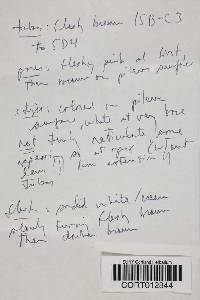 tubes: flesh brown 15B-C3
to 5D4
pores: fleshy pink at first
then brown on pileus surface
stipe: colored in pileus
surface, white at very base
not truly reticulate some
appearing so at apex
due to extension of
tubes
flesh: solid white/cream
slowly turning fleshy brown
then darker brown
SUNY-Cortland Herbarium
CORT012844